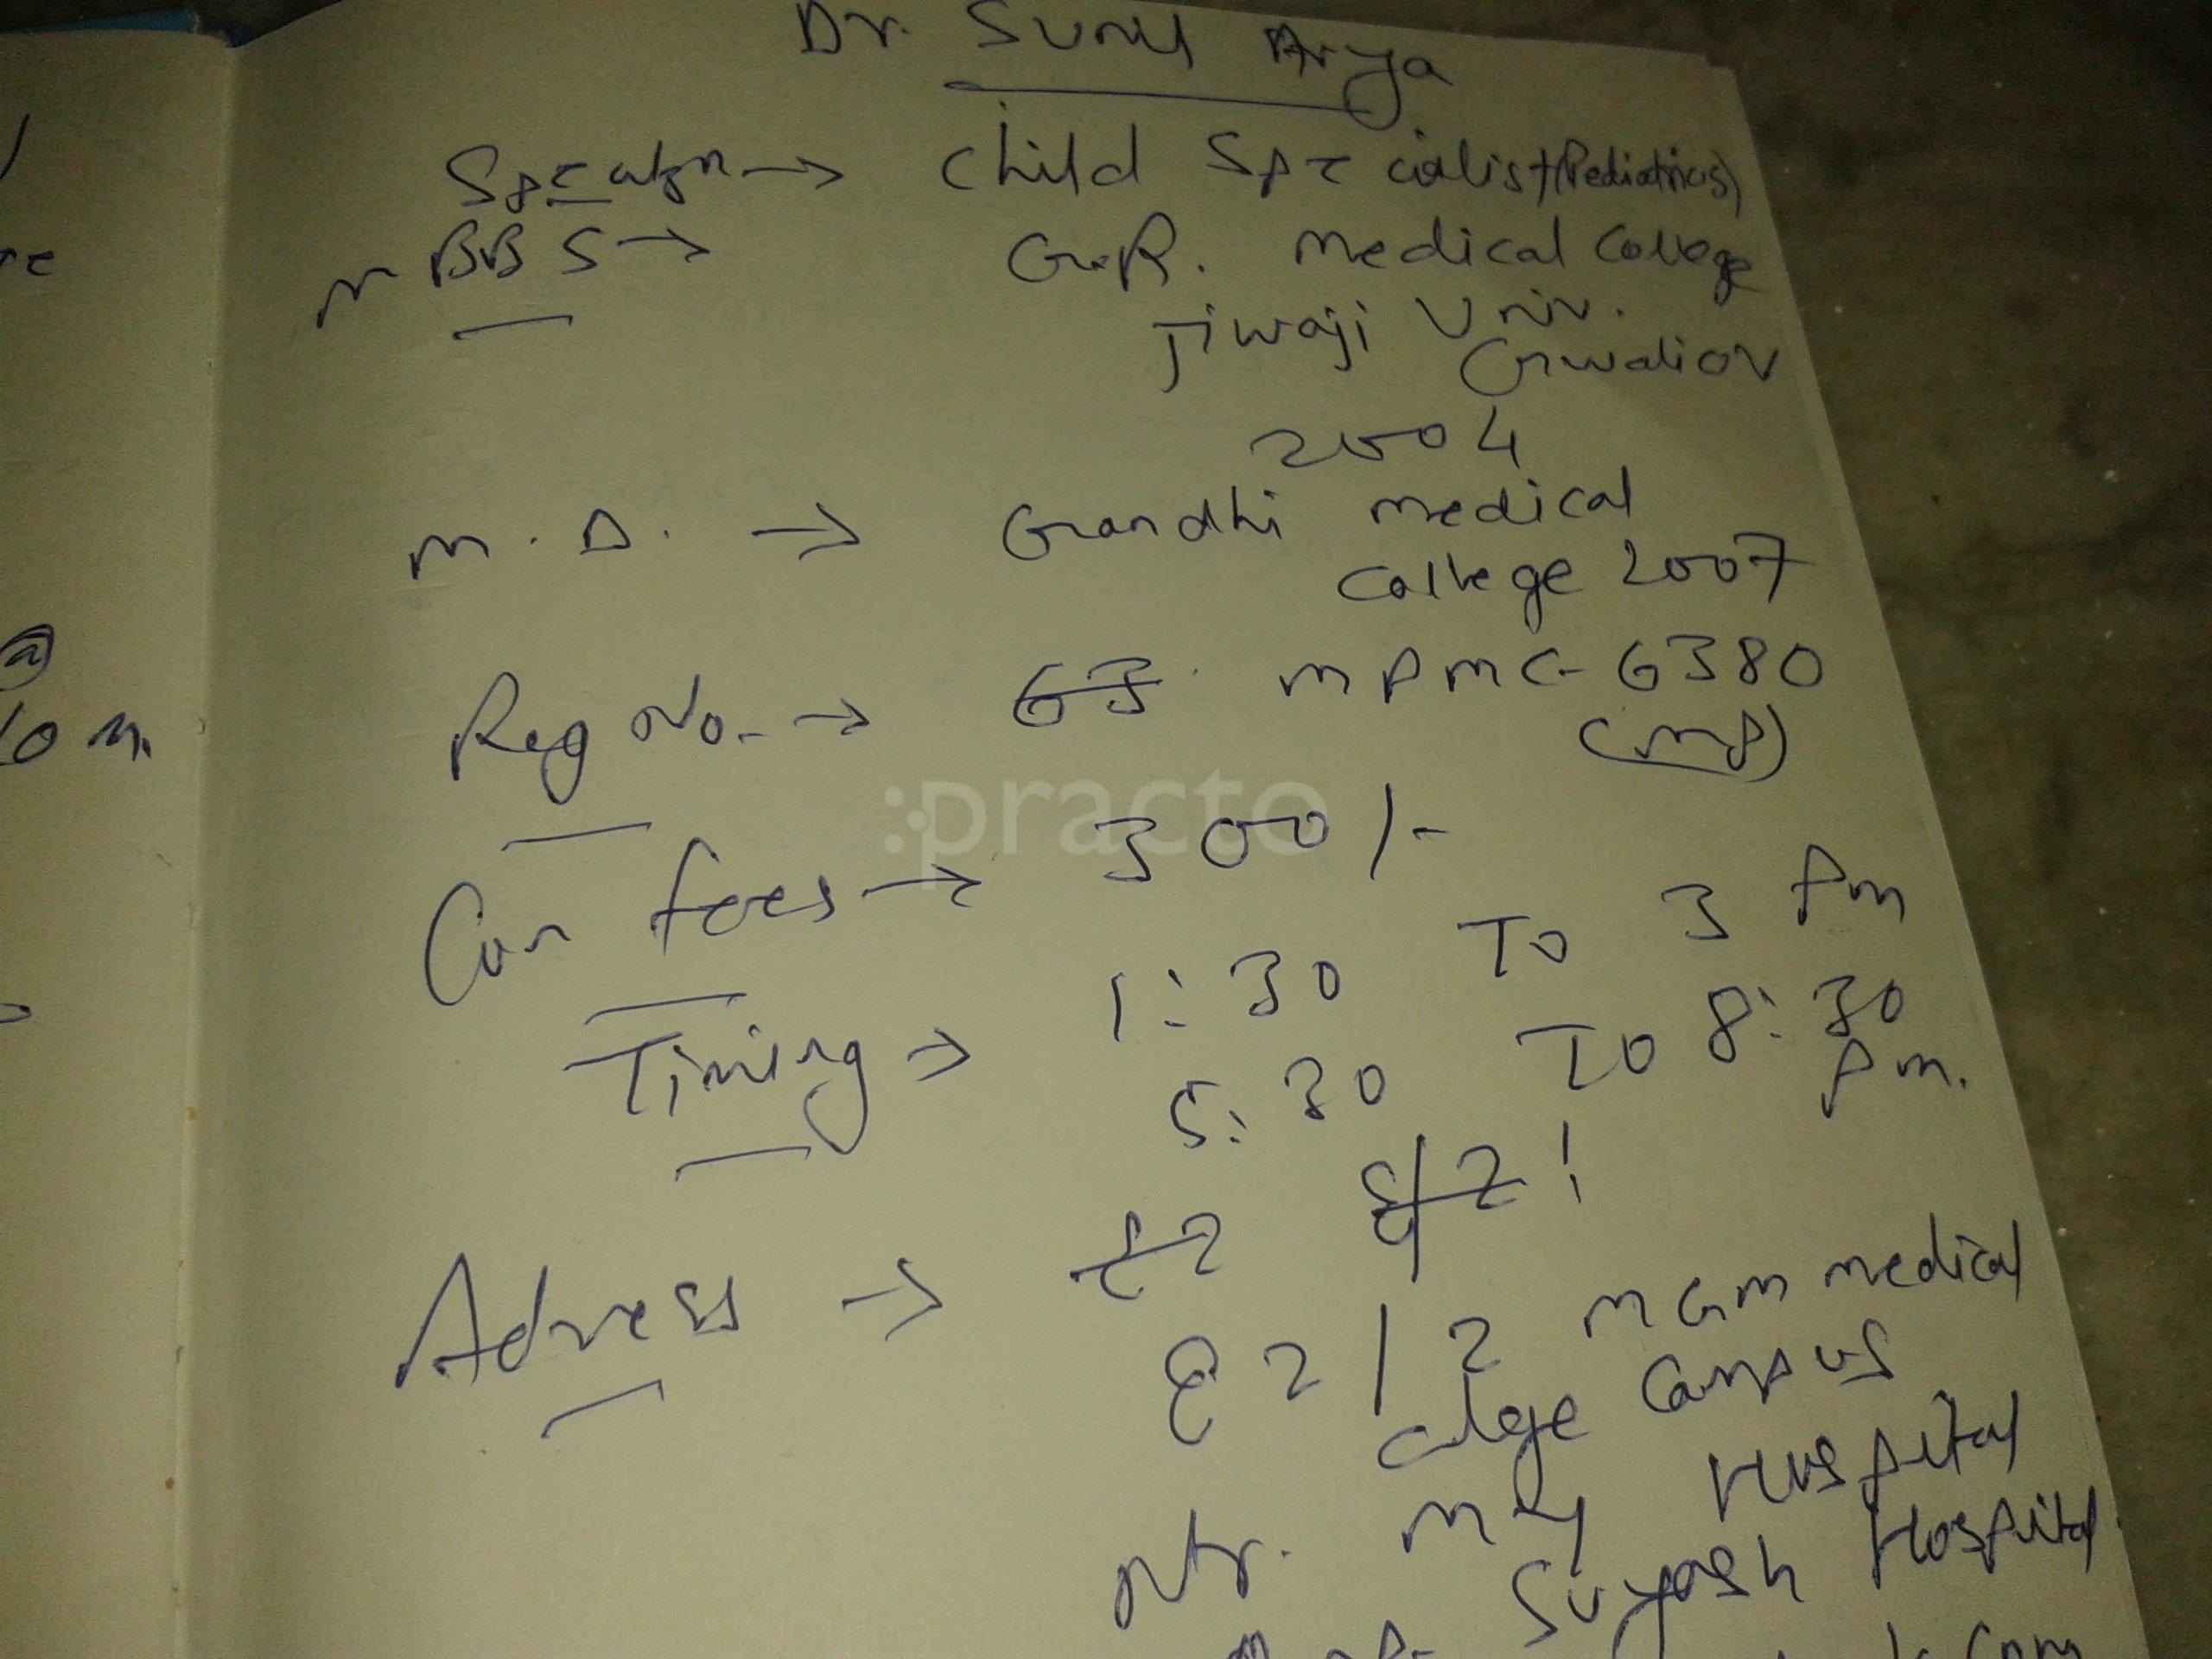 Dr. Sunil Arya
→ Child Specialist (Pediatrics)
MBBS → G.R. Medical College
Jiwaji Univ.
Gwalior
2004
M.D. → Gandhi medical
College 2007
Reg No. → 63 MPMC-6380
(MP)
:practo
Con fees → 300/-
Timing → 1:30 To 3 Pm
5:30 To 8:30
Pm.
Adress →
E 2/2 MGM medical
Campus
Nr. MY Hospital
Suyash Hospital